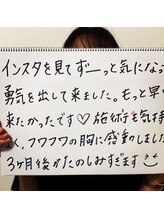 インスタを見てずーっと気になっ
勇気を出して来ました。もっと早
来たかったです♡施術も気持
フワフワの胸に感動しました
3ヶ月後がたのしみすぎます